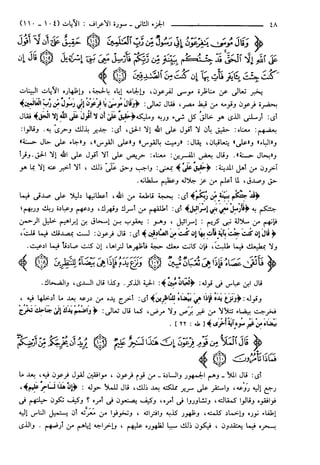 ٤٨ الجزء الثاني - سورة الأعراف : الآيات (١٠٤ - ١١٠)
﴿ وَقَالَ مُوسَى يَا فِرْعَوْنُ إِنِّي رَسُولٌ مِّن رَّبِّ الْعَالَمِينَ حَقِيقٌ عَلَى أَن لَّا أَقُولَ
عَلَى اللَّهِ إِلَّا الْحَقَّ قَدْ جِئْتُكُم بِبَيِّنَةٍ مِّن رَّبِّكُمْ فَأَرْسِلْ مَعِيَ بَنِي إِسْرَائِيلَ قَالَ إِن
كُنتَ جِئْتَ بِآيَةٍ فَأْتِ بِهَا إِن كُنتَ مِنَ الصَّادِقِينَ ﴾
يخبر تعالى عن مناظرة موسى لفرعون، وإلجامه إياه بالحجة، وإظهاره الآيات البينات
بحضرة فرعون وقومه من قبط مصر، فقال تعالى: ﴿وقال موسى يا فرعون إني رسول من رب العالمين﴾
أي: أرسلني الذي هو خالق كل شيء وربه ومليكه ﴿حقيق على أن لا أقول على الله إلا الحق﴾ فقال
بعضهم: معناه: حقيق بأن لا أقول على الله إلا الحق، أي: جدير بذلك وحري به. وقالوا:
و«الباء» و«على» يتعاقبان، يقال: «رميت بالقوس» و«على القوس»، و«جاء على حال حسنة»
و«بحال حسنة». وقال بعض المفسرين: معناه: حريص على ألا أقول على الله إلا الحق. وقرأ
آخرون من أهل المدينة: ﴿حقيق عليَّ﴾ بمعنى: واجب وحق عليَّ ذلك، ألا أخبر عنه إلا بما هو
حق وصدق، لما أعلم من عز جلاله وعظيم سلطانه.
﴿قد جئتكم ببينة من ربكم﴾ أي: بحجة قاطعة من الله، أعطانيها دليلا على صدقي فيما
جئتكم به ﴿فأرسل معي بني إسرائيل﴾ أي: أطلقهم من أسرك وقهرك، ودعهم وعبادة ربك وربهم؛
فإنهم من سلالة نبي كريم: إسرائيل، وهو: يعقوب بن إسحاق بن إبراهيم خليل الرحمن
﴿قال إن كنت جئت بآية فأت بها إن كنت من الصادقين﴾ أي: قال فرعون: لست بمصدقك فيما قلت،
ولا بمطيعك فيما طلبت، فإن كانت معك حجة فأظهرها لنراها، إن كنت صادقاً فيما ادعيت.
﴿ فَأَلْقَى عَصَاهُ فَإِذَا هِيَ ثُعْبَانٌ مُّبِينٌ وَنَزَعَ يَدَهُ فَإِذَا هِيَ بَيْضَاءُ لِلنَّاظِرِينَ ﴾
قال ابن عباس في قوله: ﴿ثعبان مبين﴾ : الحية الذكر. وكذا قال السدي، والضحاك.
وقوله: ﴿ونزع يده فإذا هي بيضاء للناظرين﴾ أي: أخرج يده من درعه بعد ما أدخلها فيه ،
فخرجت بيضاء تتلألأ من غير برص ولا مرض، كما قال تعالى: ﴿واضمم يدك إلى جناحك تخرج
بيضاء من غير سوء آية أخرى﴾ [طه : ٢٢] .
﴿ قَالَ الْمَلَأُ مِن قَوْمِ فِرْعَوْنَ إِنَّ هَذَا لَسَاحِرٌ عَلِيمٌ يُرِيدُ أَن يُخْرِجَكُم مِّنْ أَرْضِكُمْ
فَمَاذَا تَأْمُرُونَ ﴾
أي: قال الملأ - وهم الجمهور والسادة - من قوم فرعون، موافقين لقول فرعون فيه، بعد ما
رجع إليه روعه، واستقر على سرير مملكته بعد ذلك، قال للملأ حوله : ﴿إن هذا لساحر عليم﴾.
فوافقوه وقالوا كمقالته، وتشاوروا في أمره، وكيف يصنعون في أمره ؟ وكيف تكون حيلتهم في
إطفاء نوره وإخماد كلمته، وظهور كذبه وافترائه ، وتخوفوا من معرَّته أن يستميل الناس إليه
بسحره فيما يعتقدون ، فيكون ذلك سببا لظهوره عليهم ، وإخراجه إياهم من أرضهم . والذي